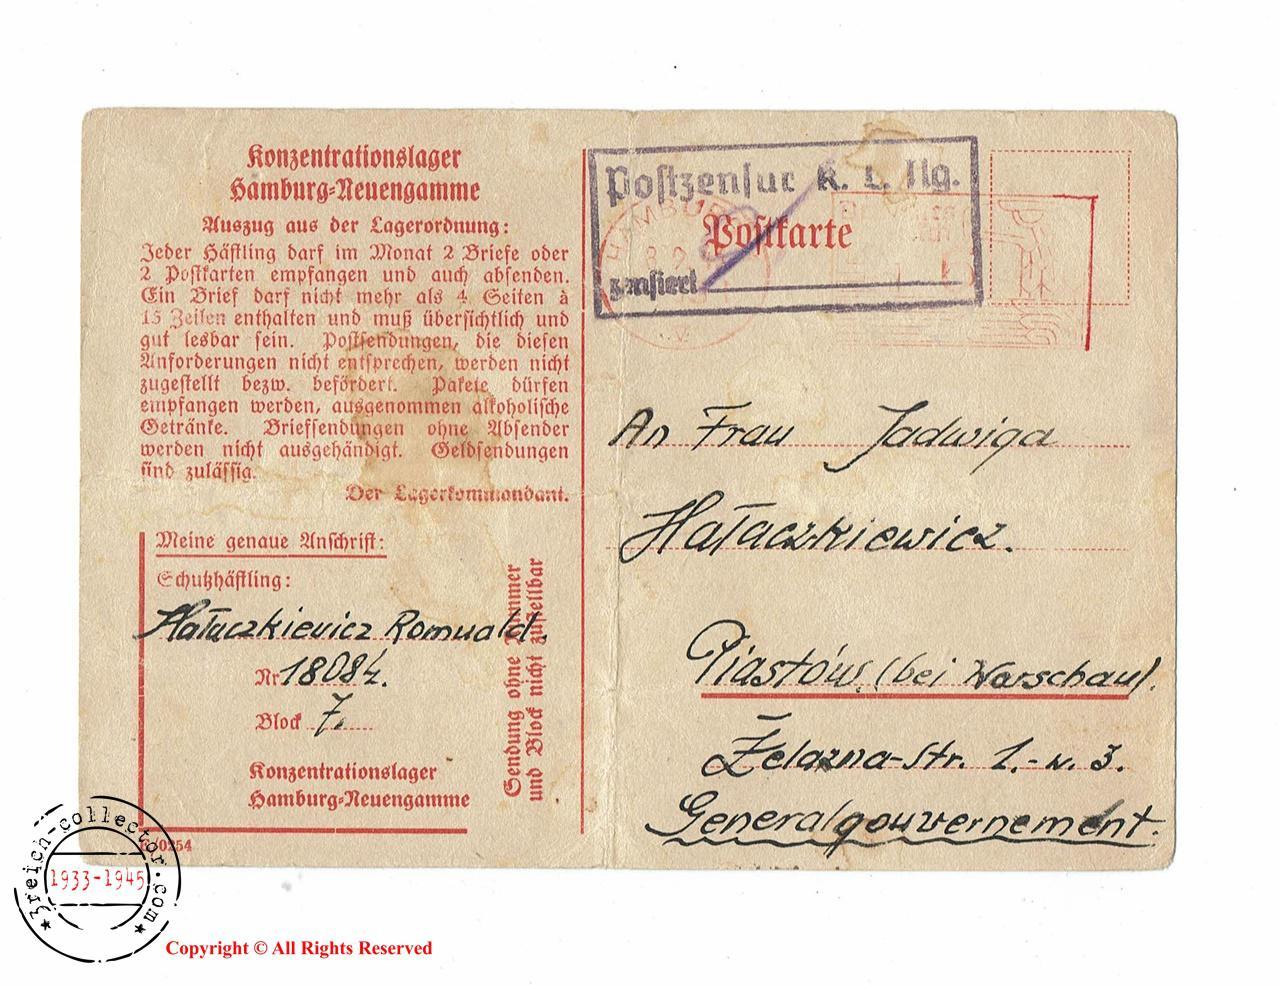 Konzentrationslager
Hamburg=Neuengamme
Auszug aus der Lagerordnung:
Jeder Häftling darf im Monat 2 Briefe oder
2 Postkarten empfangen und auch absenden.
Ein Brief darf nicht mehr als 4 Seiten à
15 Zeilen enthalten und muß übersichtlich und
gut lesbar sein. Postsendungen, die diesen
Anforderungen nicht entsprechen, werden nicht
zugestellt bezw. befördert. Pakete dürfen
empfangen werden, ausgenommen alkoholische
Getränke. Briefsendungen ohne Absender
werden nicht ausgehändigt. Geldsendungen
sind zulässig.
Der Lagerkommandant.
Meine genaue Anschrift:
Schutzhäftling:
Hałaczkiewicz Romuald.
Nr 18084.
Block 7.
Konzentrationslager
Hamburg=Neuengamme
Sendung ohne Nummer
und Block nicht zustellbar
Postzensur K. L. Ng.
HAMBURG
Postkarte
zensiert
An Frau Jadwiga
Hałaczkiewicz.
Piastów. (bei Warschau).
Żelazna-Str. 1.-w. 3.
Generalgouvernement.
3reich-collector.com
1933-1945
Copyright © All Rights Reserved